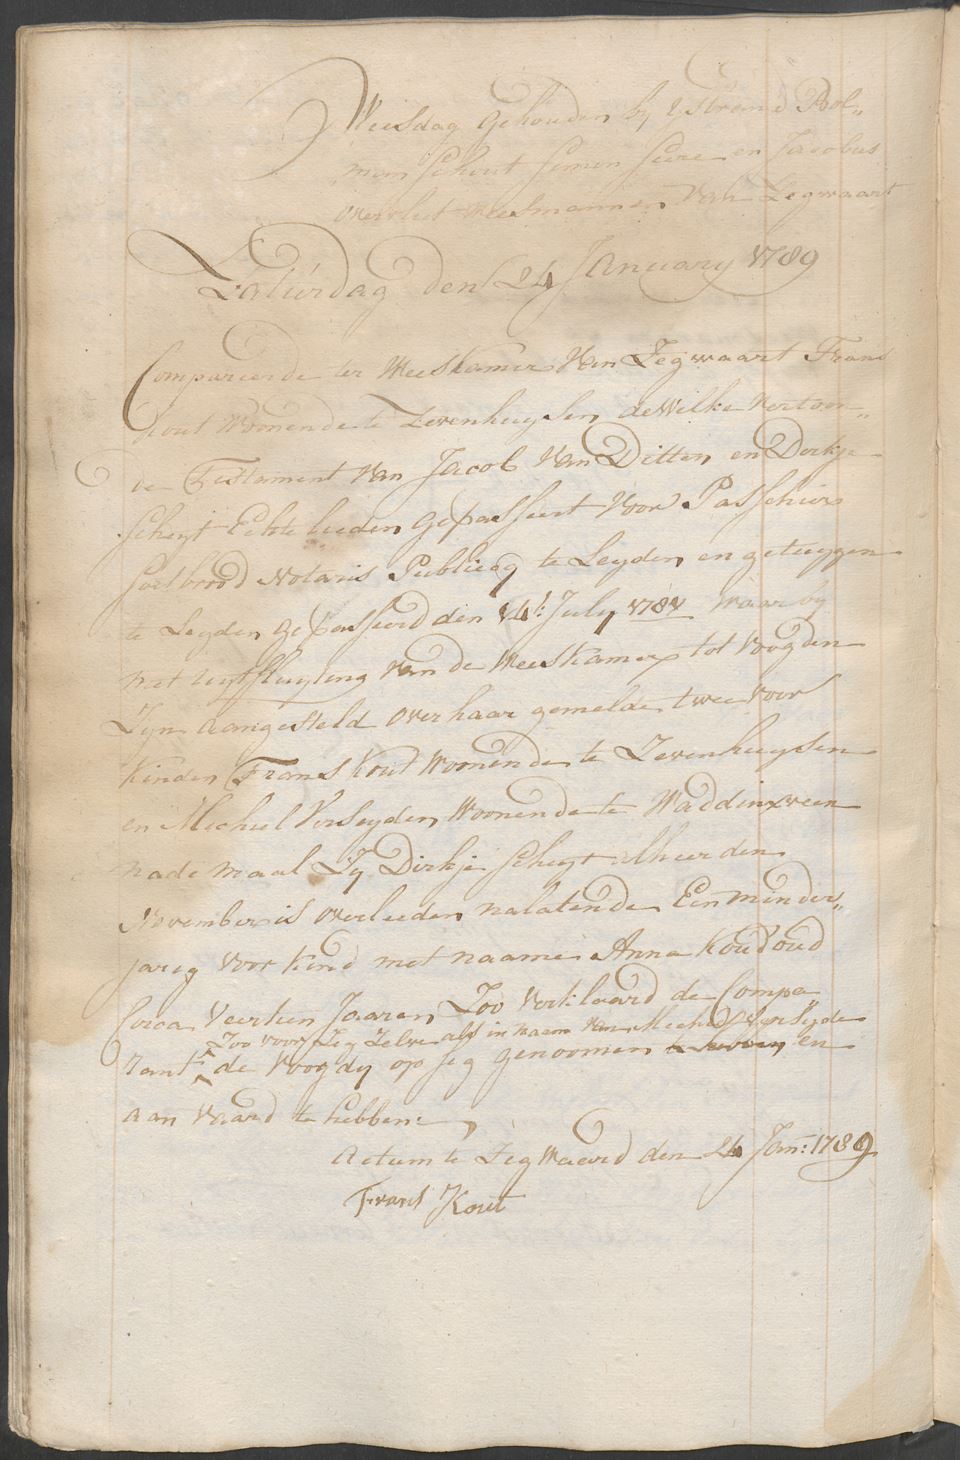 Weesdag gehouden by Ysbrand Bol„
man Schout Simon Seve en Jacobus
overvliet weesmannen van Zegwaart
Saturdag den 24 January 1789
Compareerde ter Weeskamer van Zegwaart Frans
kout Woonende te Zevenhuysen dewelke vertoon„
de Testament van Jacob van Ditten en Dirkje
Scheyt Echte lieden gepasseert voor Passchier
Soetbrood Notaris Publicq te Leyden en getuygen
te Leyden gepasseerd den 14: July 1781 waar by
met uytsluyting van de Weeskamer tot Voogden
Zyn aangesteld over haar gemelde twee voor
kinders Frans Kout Woonende te Zevenhuysen
en Michiel Verleyden Woonende te Waddinxveen
nademaal Zy Dirkje Scheyt alhier den
November is overleeden nalatende Een minder„
jarig voor kind met naame Anna Koud oud
Circa Veertien Jaaren Zoo verklaard de Compa„
Zoo voor Zig Zelve als in naam van Michiel Verleyde
rant de Voogdy op sig genoomen te hebben en
aan vaard te hebben
Actum te Zegwaard den 24 Jan: 1789
Frans Kout